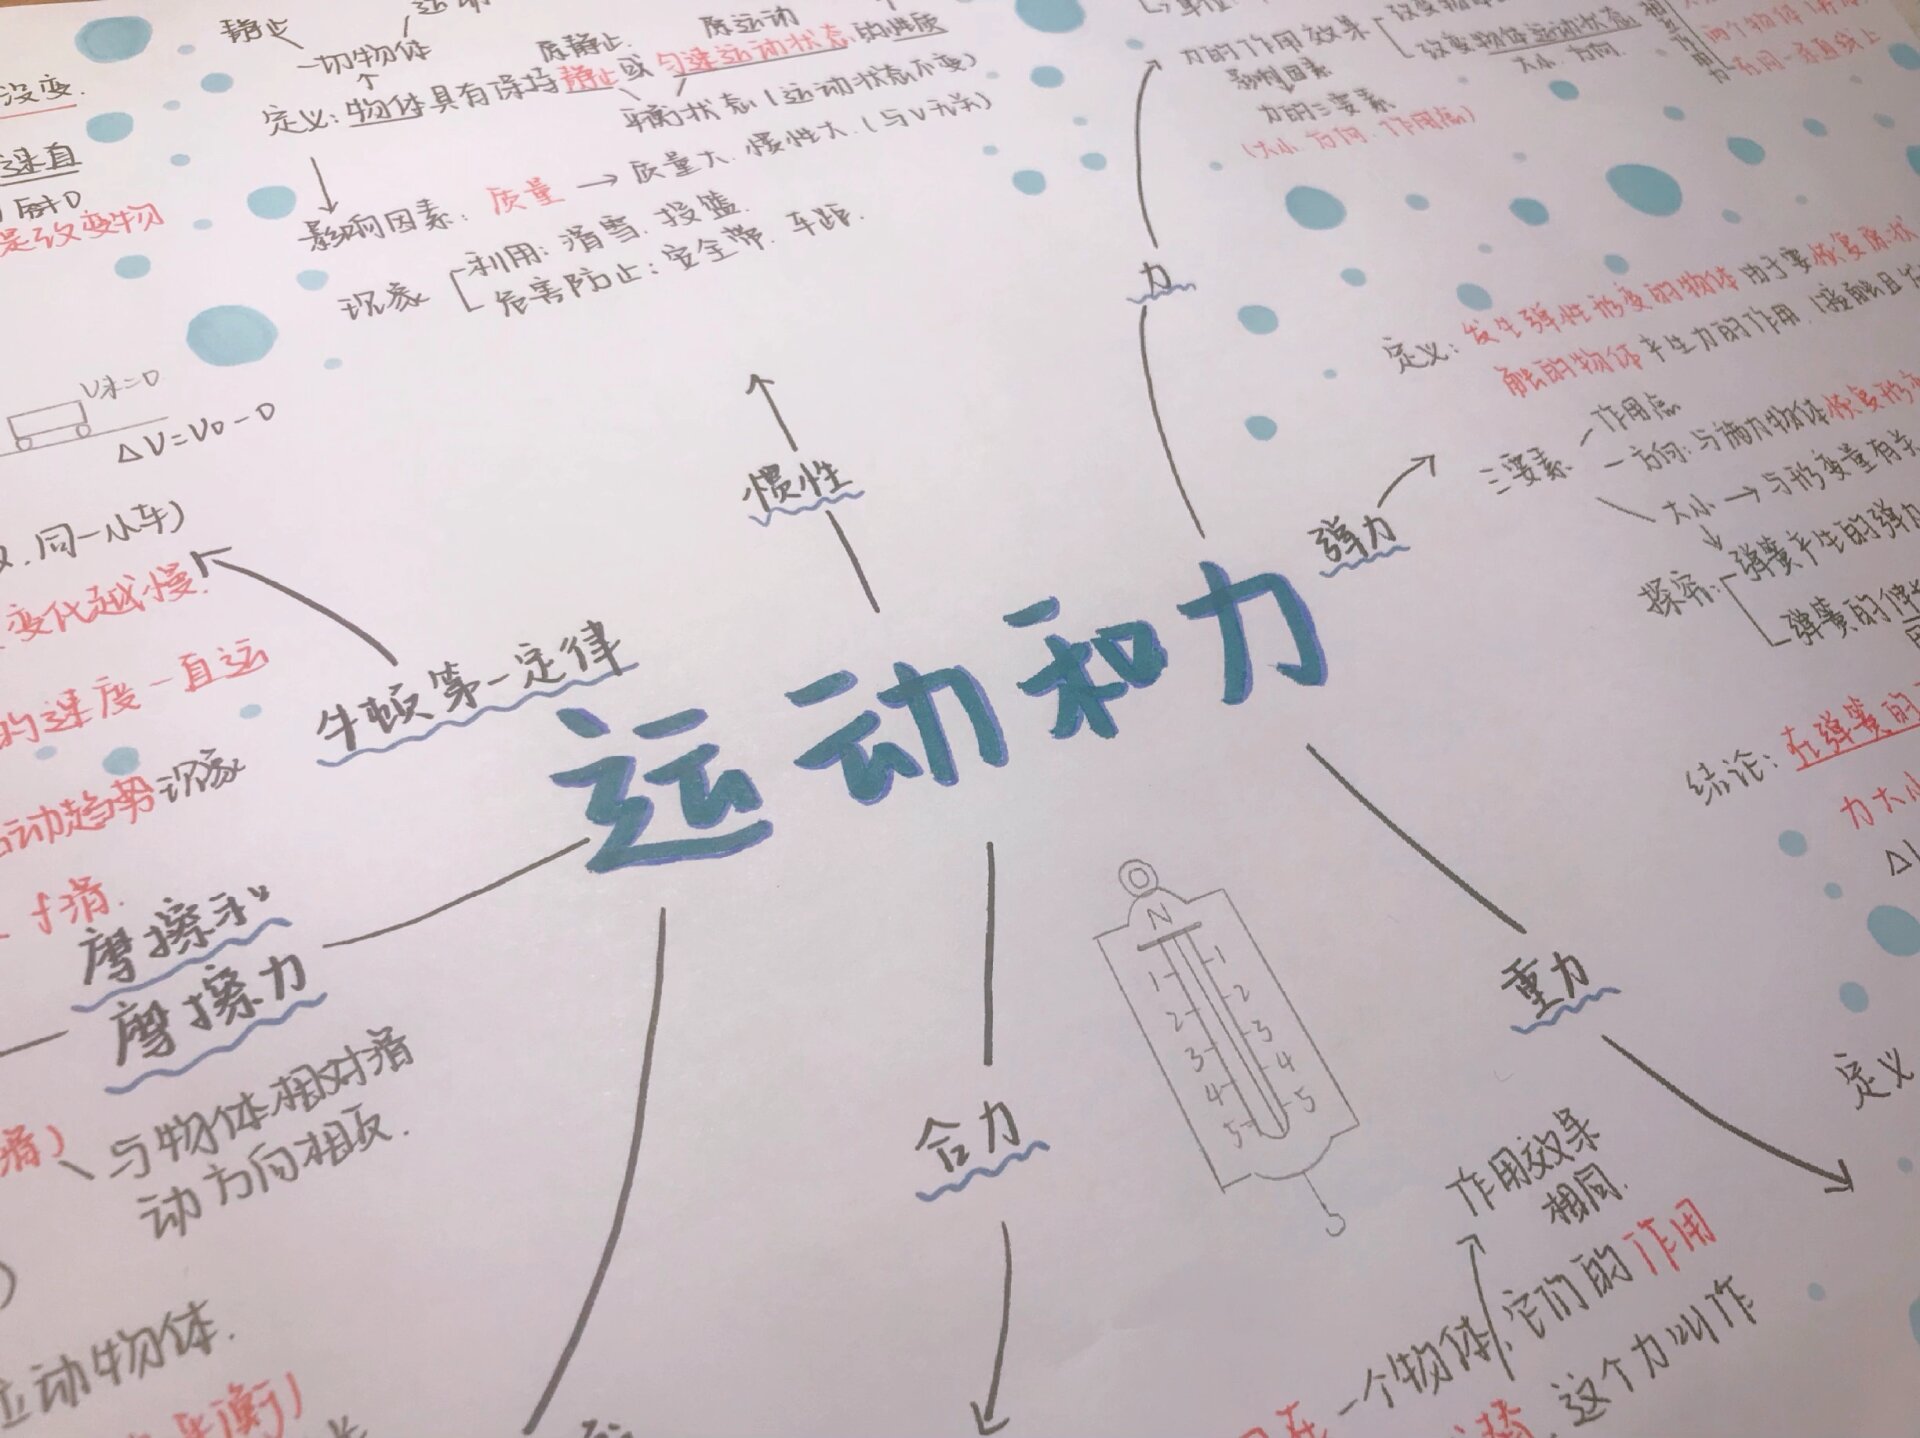 静止
一切物体
原静止.
原运动
定义: 物体具有保持静止或匀速运动状态的性质
平衡状态 (运动状态不变)
影响因素: 质量 → 质量大. 惯性大. (与V无关)
现象
利用: 滑雪. 投篮.
危害防止: 安全带. 车距.
惯性
没变.
是改变物
V末=0
ΔV=V0-0
同一小车)
变化越慢.
的速度一直运
动趋势现象
f滑.
牛顿第一定律
力的作用效果
改变物体运动状态
大小. 方向.
影响因素
力的三要素
(大小. 方向. 作用点)
两个物体
在同一条直线上
力
定义: 发生弹性形变的物体由于要恢复原状
触的物体产生力的作用. (接触且
三要素
作用点
方向: 与施力物体恢复形变
大小 → 与形变量有关
探究:
弹簧产生的弹力
弹簧的伸长
弹力
结论: 在弹簧的
力大小
运动和力
摩擦和
摩擦力
与物体相对滑
动方向相反.
运动物体.
衡)
合力
N
1
2
3
4
5
1
2
3
4
5
重力
定义
作用效果
相同.
一个物体, 它们的作用
替. 这个力叫作